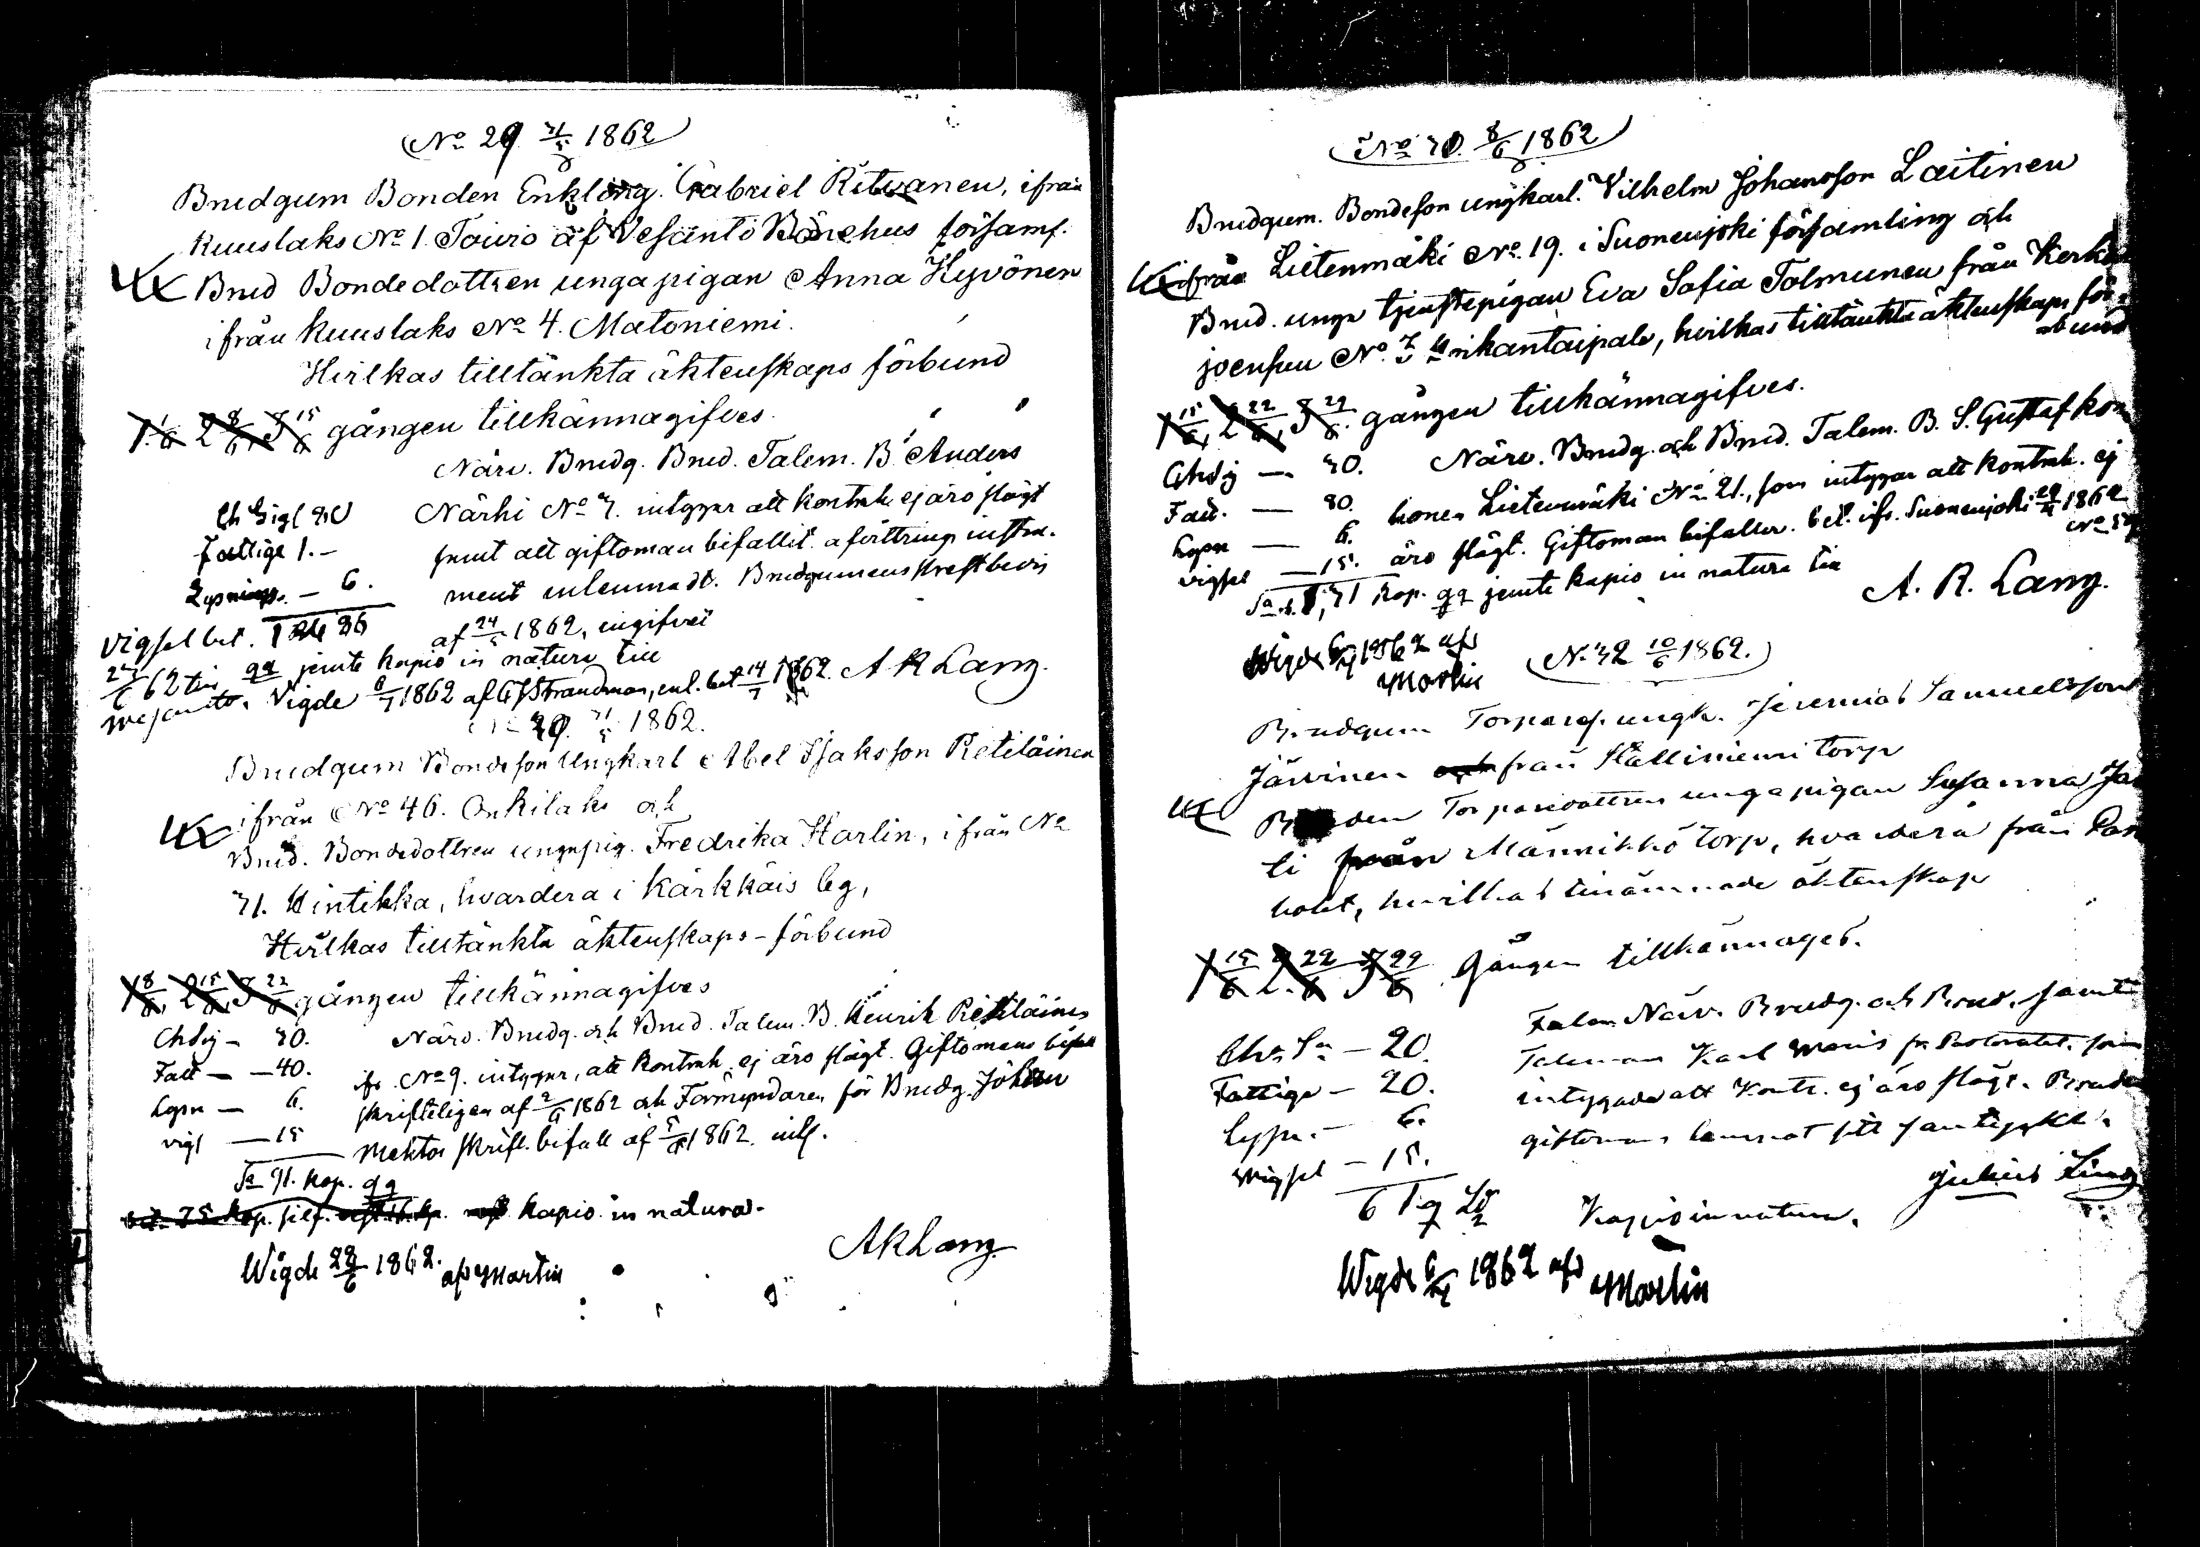 No 29 31/5 1862
Brudgum Bonden Enkling. Gabriel Ritvanen, ifrån
Kuuslaks No 1. Toivio af Vesanto Bönehus församl.
Brud Bondedottren unga pigan Anna Hyvönen
ifrån Kuuslaks No 4. Matoniemi.
Hvilkas tilltänkta äktenskaps förbund
1 1/6 2 8/6, 3 15/6 gången tillkännagifves.
Närv. Brudg. Brud. Talem. B. Anders
Närhi No 7. intygar att kontrah ej äro slägt
samt att giftoman bifallit. afvittrings instru-
ment inlemnadt. Brudgummens skrftbevis
af 24/5 1862, ingifvet
Fattige 1.-
Lysnings. - 6.
Vigsel bet.
jemte kapio in natura till
Vigde 6/7 1862 af Strandman, enl. bet 14/7 1862. A R Lang.
29. 31/5 1862.
Brudgum Bondeson Ungkarl Abel Isaksson Pietiläinen
ifrån No 46. Onkilaks och
Brud. Bondedottren unga pig. Fredrika Harlin, ifrån No
31. Hintikka, hvardera i Kärkkäis leg,
Hvilkas tilltänkta äktenskaps-förbund
1 8/6, 2 15/6, 3 22/6 gången tillkännagifves
Närv. Brudg. och Brud. Talem. B. Henrik Pietiläinen
ifr. No 9. intygar, att kontrah. ej äro slägt. Giftomans bifall
skrifteligen af 2/6 1862 och Förmyndaren för Brudg. Johan
skriftl. bifall af 5/6 1862. inlf.
Chsig - 30.
Fatt - - 40.
Lysn - 6.
vigs - 15
Sa 91. kop.
kapio in natura.
A R Lang
Wigde 22/6 1862. af Martin
No 30. 8/6 1862
Brudgum. Bondeson ungkarl. Vilhelm Johansson Laitinen
ifrån Lietenmäki No. 19. i Suonenjoki församling och
Brud. unga tjenstepigan Eva Sofia Tolmunen från Kerkon
joensuu No. 7 Hirikantaipale, hvilkas tilltänkta äktenskaps för-
bund
1 15/6, 2 22/6, 3 29/6. gången tillkännagifves.
Närv. Brudg. och Brud. Talem. B. S. Gustaf Kor
honen Lietenmäki No 21., som intygar att kontrah. ej
äro slägt. Giftoman bifaller. bet. ifr. Suonenjoki 1862
Chsig - 30.
Fatt. - 80.
Lysn - 6.
vigsel - 15.
kop. jemte kapio in natura till
A. R. Lang.
Wigde 6/7 1862 af
Martin
No 32 10/6 1862.
Brudgum Torpares. ungk. Jeremias Samuelsson
Järvinen från Hälliniemi torp
Bruden Torparedottren unga pigan Susanna Jar
ti från Männikkö torp, hvardera från Pas
, hvilkas tillämnade äktenskap
1 15/6 2 22/6 3 29/6 Gången tillkännages.
Närv. Brudg. och Brud, samt
Taleman Karl fr Pastoratet, som
intygade att Kontr. ej äro slägt. Brudens
giftoman lemnat sitt samtycke.
Chs Sn - 20.
Fattige - 20.
Lysn. - 6.
Wigsel - 15.
Kapio in natura.
Julius
Wigde 6/7 1862 af
Martin